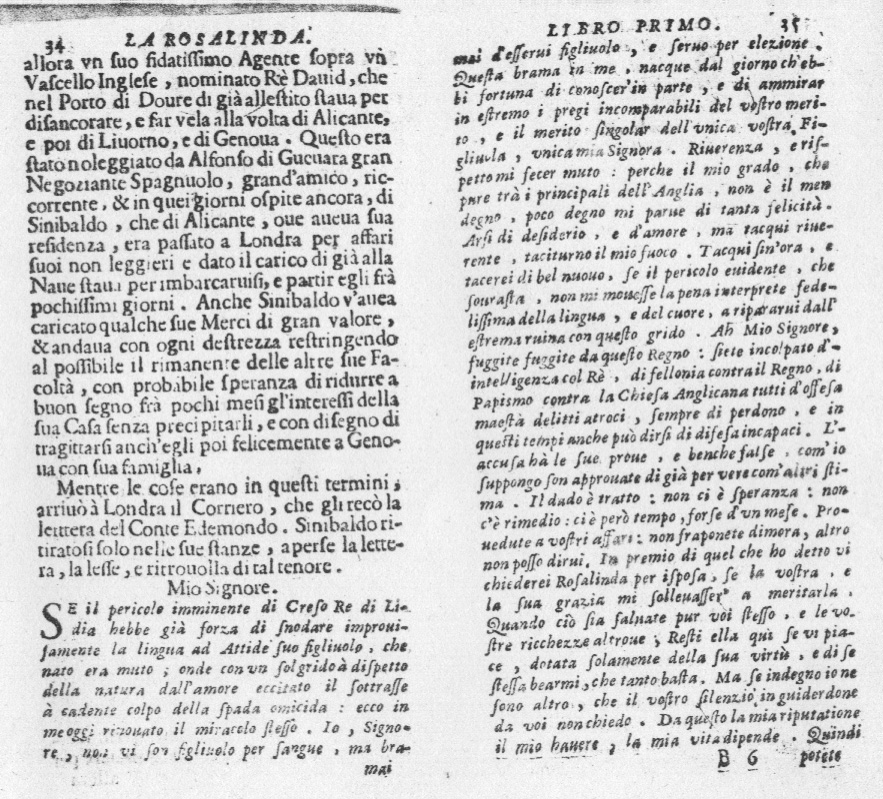 34 LA ROSALINDA.
allora vn suo fidatissimo Agente sopra vn
Vascello Inglese, nominato Rè Dauid, che
nel Porto di Doure di già allestito staua per
disancorare, e far vela alla volta di Alicante,
e poi di Liuorno, e di Genoua. Questo era
stato noleggiato da Alfonso di Gueuara gran
Negoziante Spagnuolo, grand'amico, ric-
corrente, & in quei giorni ospite ancora, di
Sinibaldo, che di Alicante, oue aueua sua
residenza, era passato a Londra per affari
suoi non leggieri e dato il carico di già alla
Naue staua per imbarcaruisi, e partir egli frà
pochissimi giorni. Anche Sinibaldo v'auea
caricato qualche sue Merci di gran valore,
& andaua con ogni destrezza restringendo
al possibile il rimanente delle altre sue Fa-
coltà, con probabile speranza di ridurre a
buon segno frà pochi mesi gl'interessi della
sua Casa senza precipitarli, e con disegno di
tragittarsi anch'egli poi felicemente a Geno-
ua con sua famiglia,
Mentre le cose erano in questi termini,
arriuò à Londra il Corriero, che gli recò la
lettera del Conte Edemondo. Sinibaldo ri-
tiratosi solo nelle sue stanze, aperse la lette-
ra, la lesse, e ritrouolla di tal tenore.
Mio Signore.
SE il pericolo imminente di Creso Re di Li-
dia hebbe già forza di snodare improui-
samente la lingua ad Attide suo figliuolo, che
nato era muto; onde con vn sol grido à dispetto
della natura dall'amore eccitato il sottrasse
à cadente colpo della spada omicida: ecco in
me oggi rinouato il miracolo stesso. Io, Signo-
re, non vi son figliuolo per sangue, ma bra-
mai
LIBRO PRIMO. 35
mai d'esserui figliuolo, e seruo per elezione.
Questa brama in me, nacque dal giorno ch'eb-
bi fortuna di conoscer'in parte, e di ammirar
in estremo i pregi incomparabili del vostro meri-
to, e il merito singolar dell'vnica vostra Fi-
gliuola, vnica mia Signora. Riuerenza, e ris-
petto mi fecer muto: perche il mio grado, che
pure trà i principali dell'Anglia, non è il men
degno, poco degno mi parue di tanta felicità.
Arsi di desiderio, e d'amore, ma tacqui riue-
rente, taciturno il mio fuoco. Tacqui sin'ora, e
tacerei di bel nuouo, se il pericolo euidente, che
sourasta, non mi mouesse la pena interprete fede-
lissima della lingua, e del cuore, a ripararui dall'
estrema ruina con questo grido. Ah Mio Signore,
fuggite fuggite da questo Regno: siete incolpato d'-
intelligenza col Rè, di fellonia contra il Regno, di
Papismo contra la Chiesa Anglicana tutti d'offesa
maestà delitti atroci, sempre di perdono, e in
questi tempi anche può dirsi di difesa incapaci. L'-
accusa hà le sue proue, e benche false, com'io
suppongo son approuate di già per vere com'altri sti-
ma. Il dado è tratto: non ci è speranza: non
c'è rimedio: ci è però tempo, forse d'vn mese. Pro-
uedute a vostri affari: non fraponete dimora, altro
non posso dirui. In premio di quel che ho detto vi
chiederei Rosalinda per isposa, se la vostra, e
la sua grazia mi solleuasser' a meritarla.
Quando ciò sia saluate pur voi stesso, e le vo-
stre ricchezze altroue; Resti ella qui se vi pia-
ce, dotata solamente della sua virtù, e di se
stessa bearmi, che tanto basta. Ma se indegno io ne
sono altro, che il vostro silenzio in guiderdone
da voi non chiedo. Da questo la mia riputatione
il mio hauere, la mia vita dipende. Quindi
B 6 potete